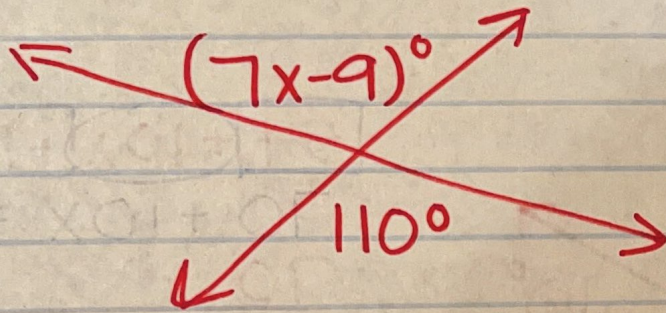 (7x-9)°
110°